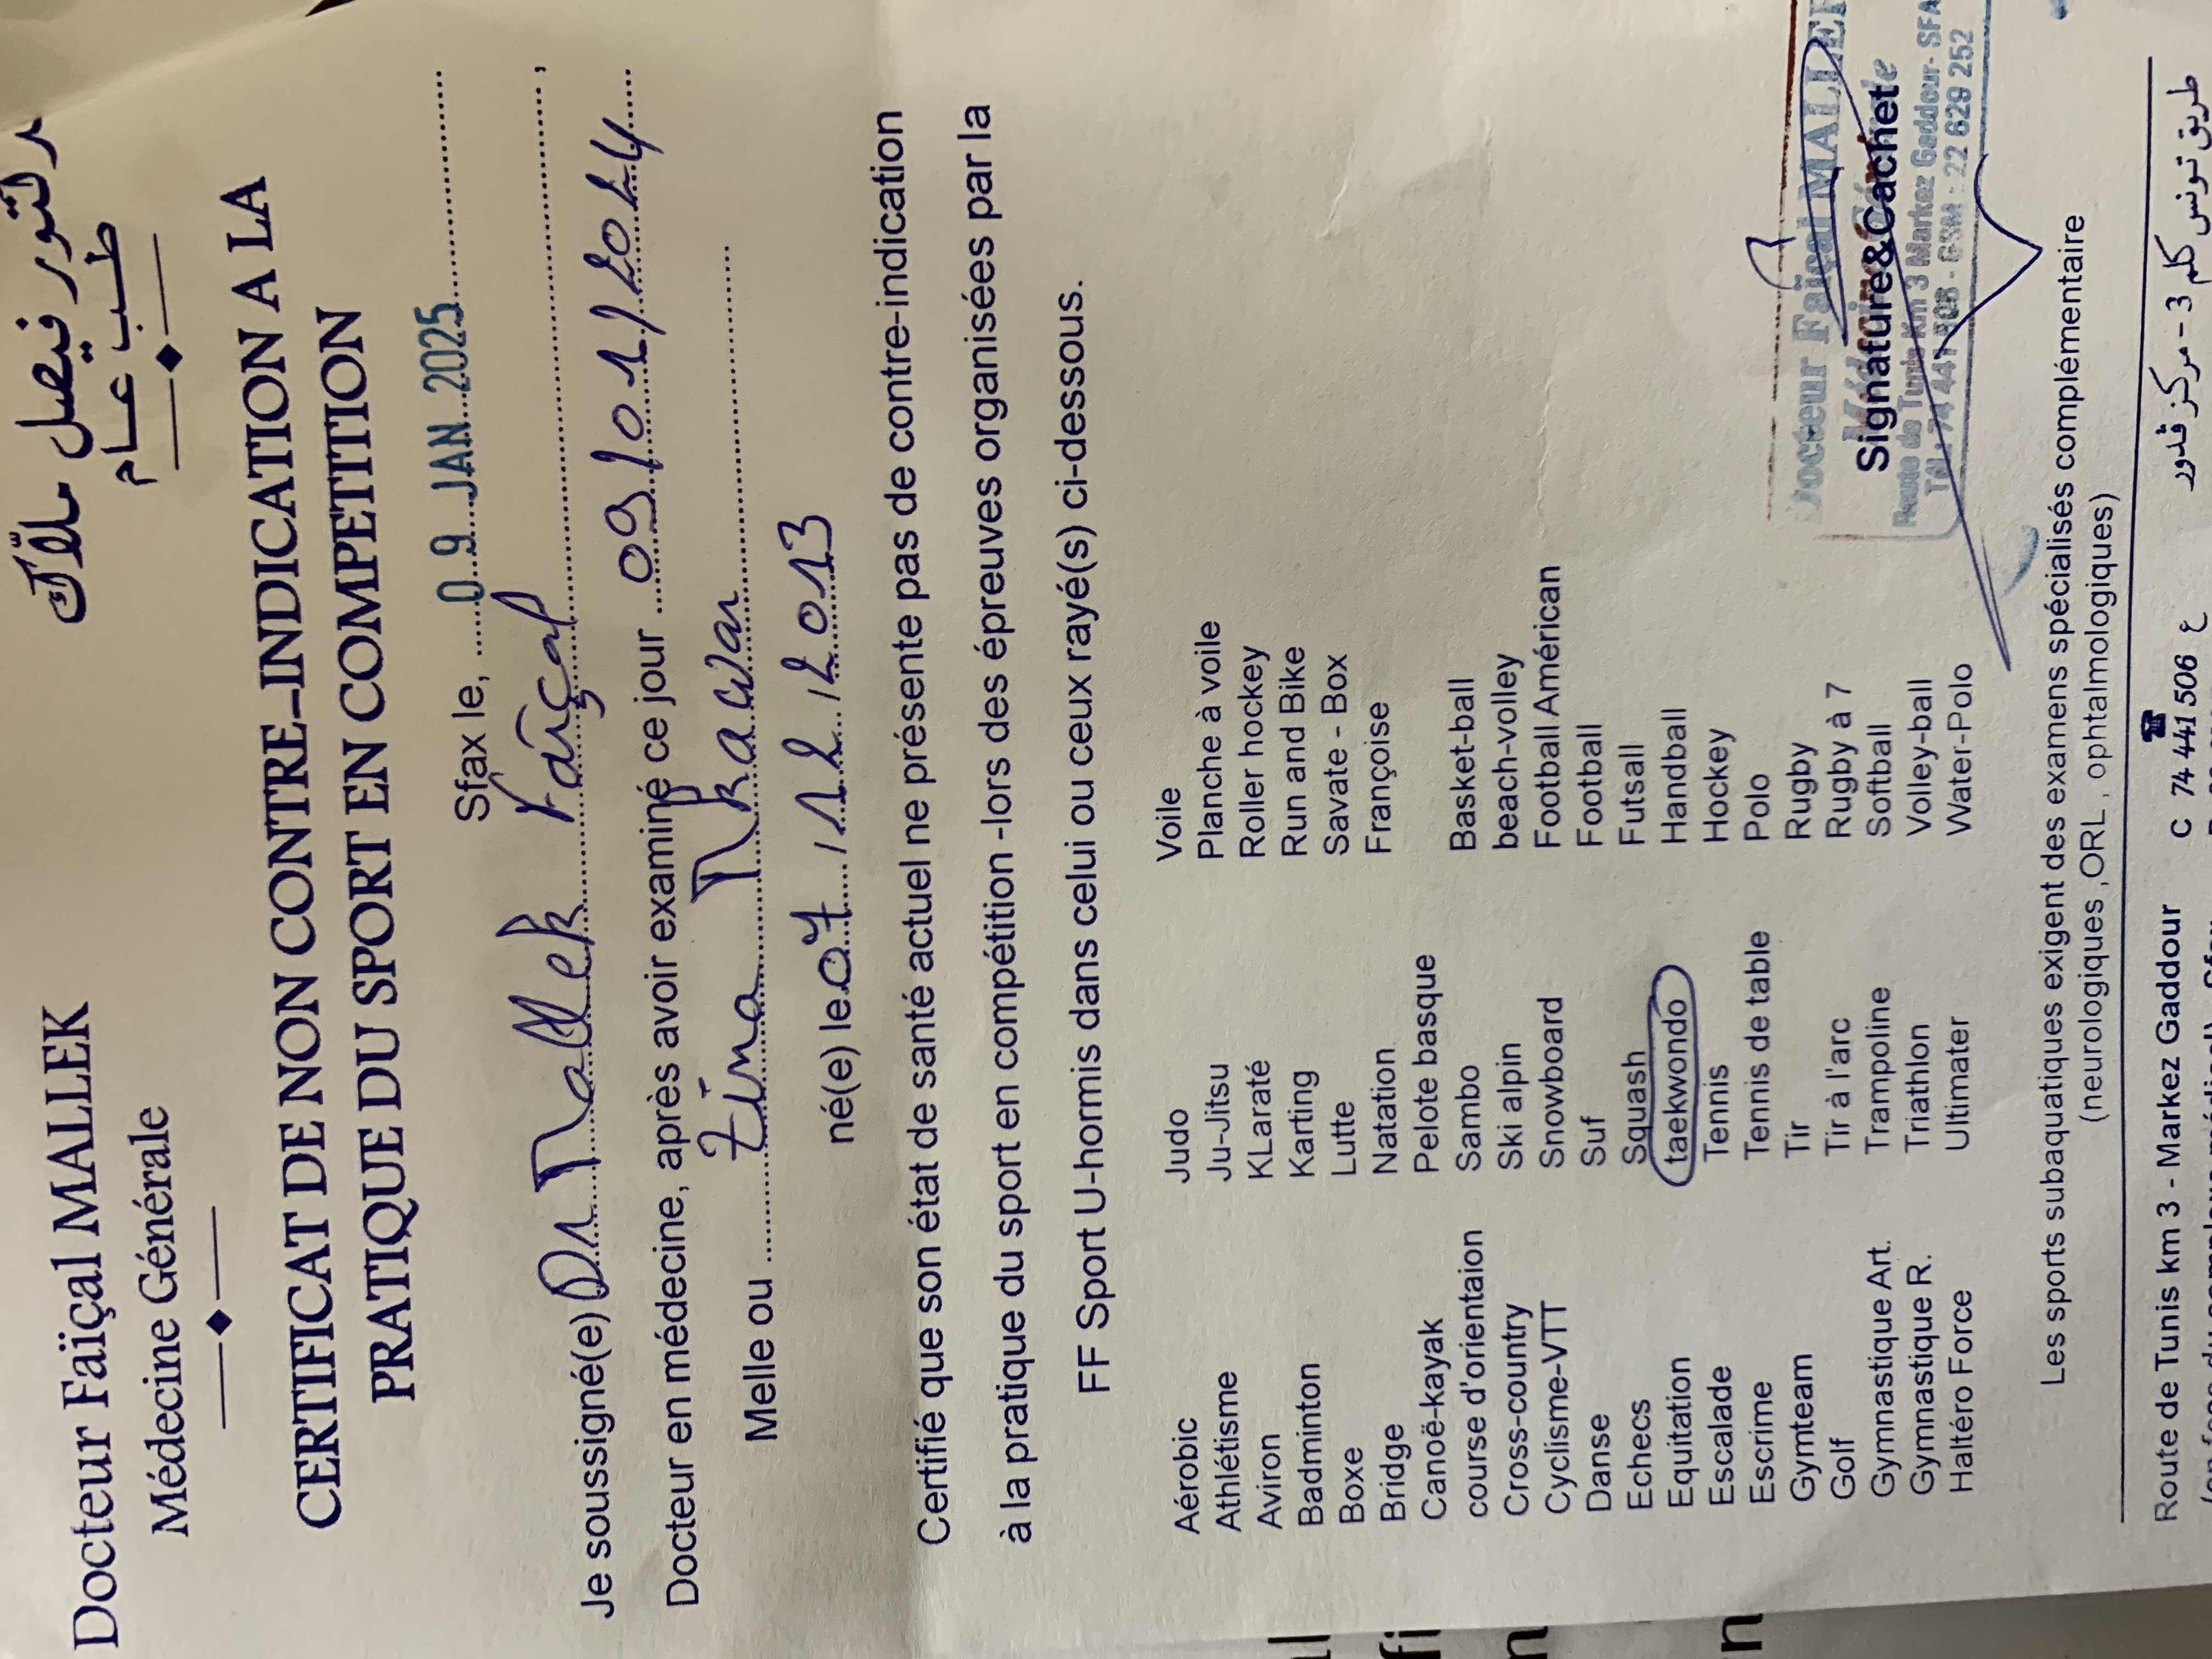 Docteur Faïçal MALLEK
Médecine Générale
الدكتور فيصل ملاّك
طب عام
CERTIFICAT DE NON CONTRE-INDICATION A LA
PRATIQUE DU SPORT EN COMPETITION
Sfax le, 0 9 JAN 2025
Je soussigné(e) Dr Mallek Faiçal ,
Docteur en médecine, après avoir examiné ce jour 09/01/2024
Melle ou Zina Rawan
né(e) le 07/12/2013
Certifié que son état de santé actuel ne présente pas de contre-indication
à la pratique du sport en compétition -lors des épreuves organisées par la
FF Sport U-hormis dans celui ou ceux rayé(s) ci-dessous.
Aérobic
Athlétisme
Aviron
Badminton
Boxe
Bridge
Canoë-kayak
course d'orientaion
Cross-country
Cyclisme-VTT
Danse
Echecs
Equitation
Escalade
Escrime
Gymteam
Golf
Gymnastique Art.
Gymnastique R.
Haltéro Force
Judo
Ju-Jitsu
KLaraté
Karting
Lutte
Natation
Pelote basque
Sambo
Ski alpin
Snowboard
Suf
Squash
taekwondo
Tennis
Tennis de table
Tir
Tir à l'arc
Trampoline
Triathlon
Ultimater
Voile
Planche à voile
Roller hockey
Run and Bike
Savate - Box
Françoise
Basket-ball
beach-volley
Football Américan
Football
Futsall
Handball
Hockey
Polo
Rugby
Rugby à 7
Softball
Volley-ball
Water-Polo
Docteur Faïçal MALLEK
Signature&Cachet
Route de Tunis Km 3 Markez Gaddour- SFA
Tél : 74 441 506 - GSM : 22 629 252
Les sports subaquatiques exigent des examens spécialisés complémentaire
(neurologiques ,ORL , ophtalmologiques)
Route de Tunis km 3 - Markez Gaddour
C 74 441 506 ع
طريق تونس كلم 3 - مركز ڤدور